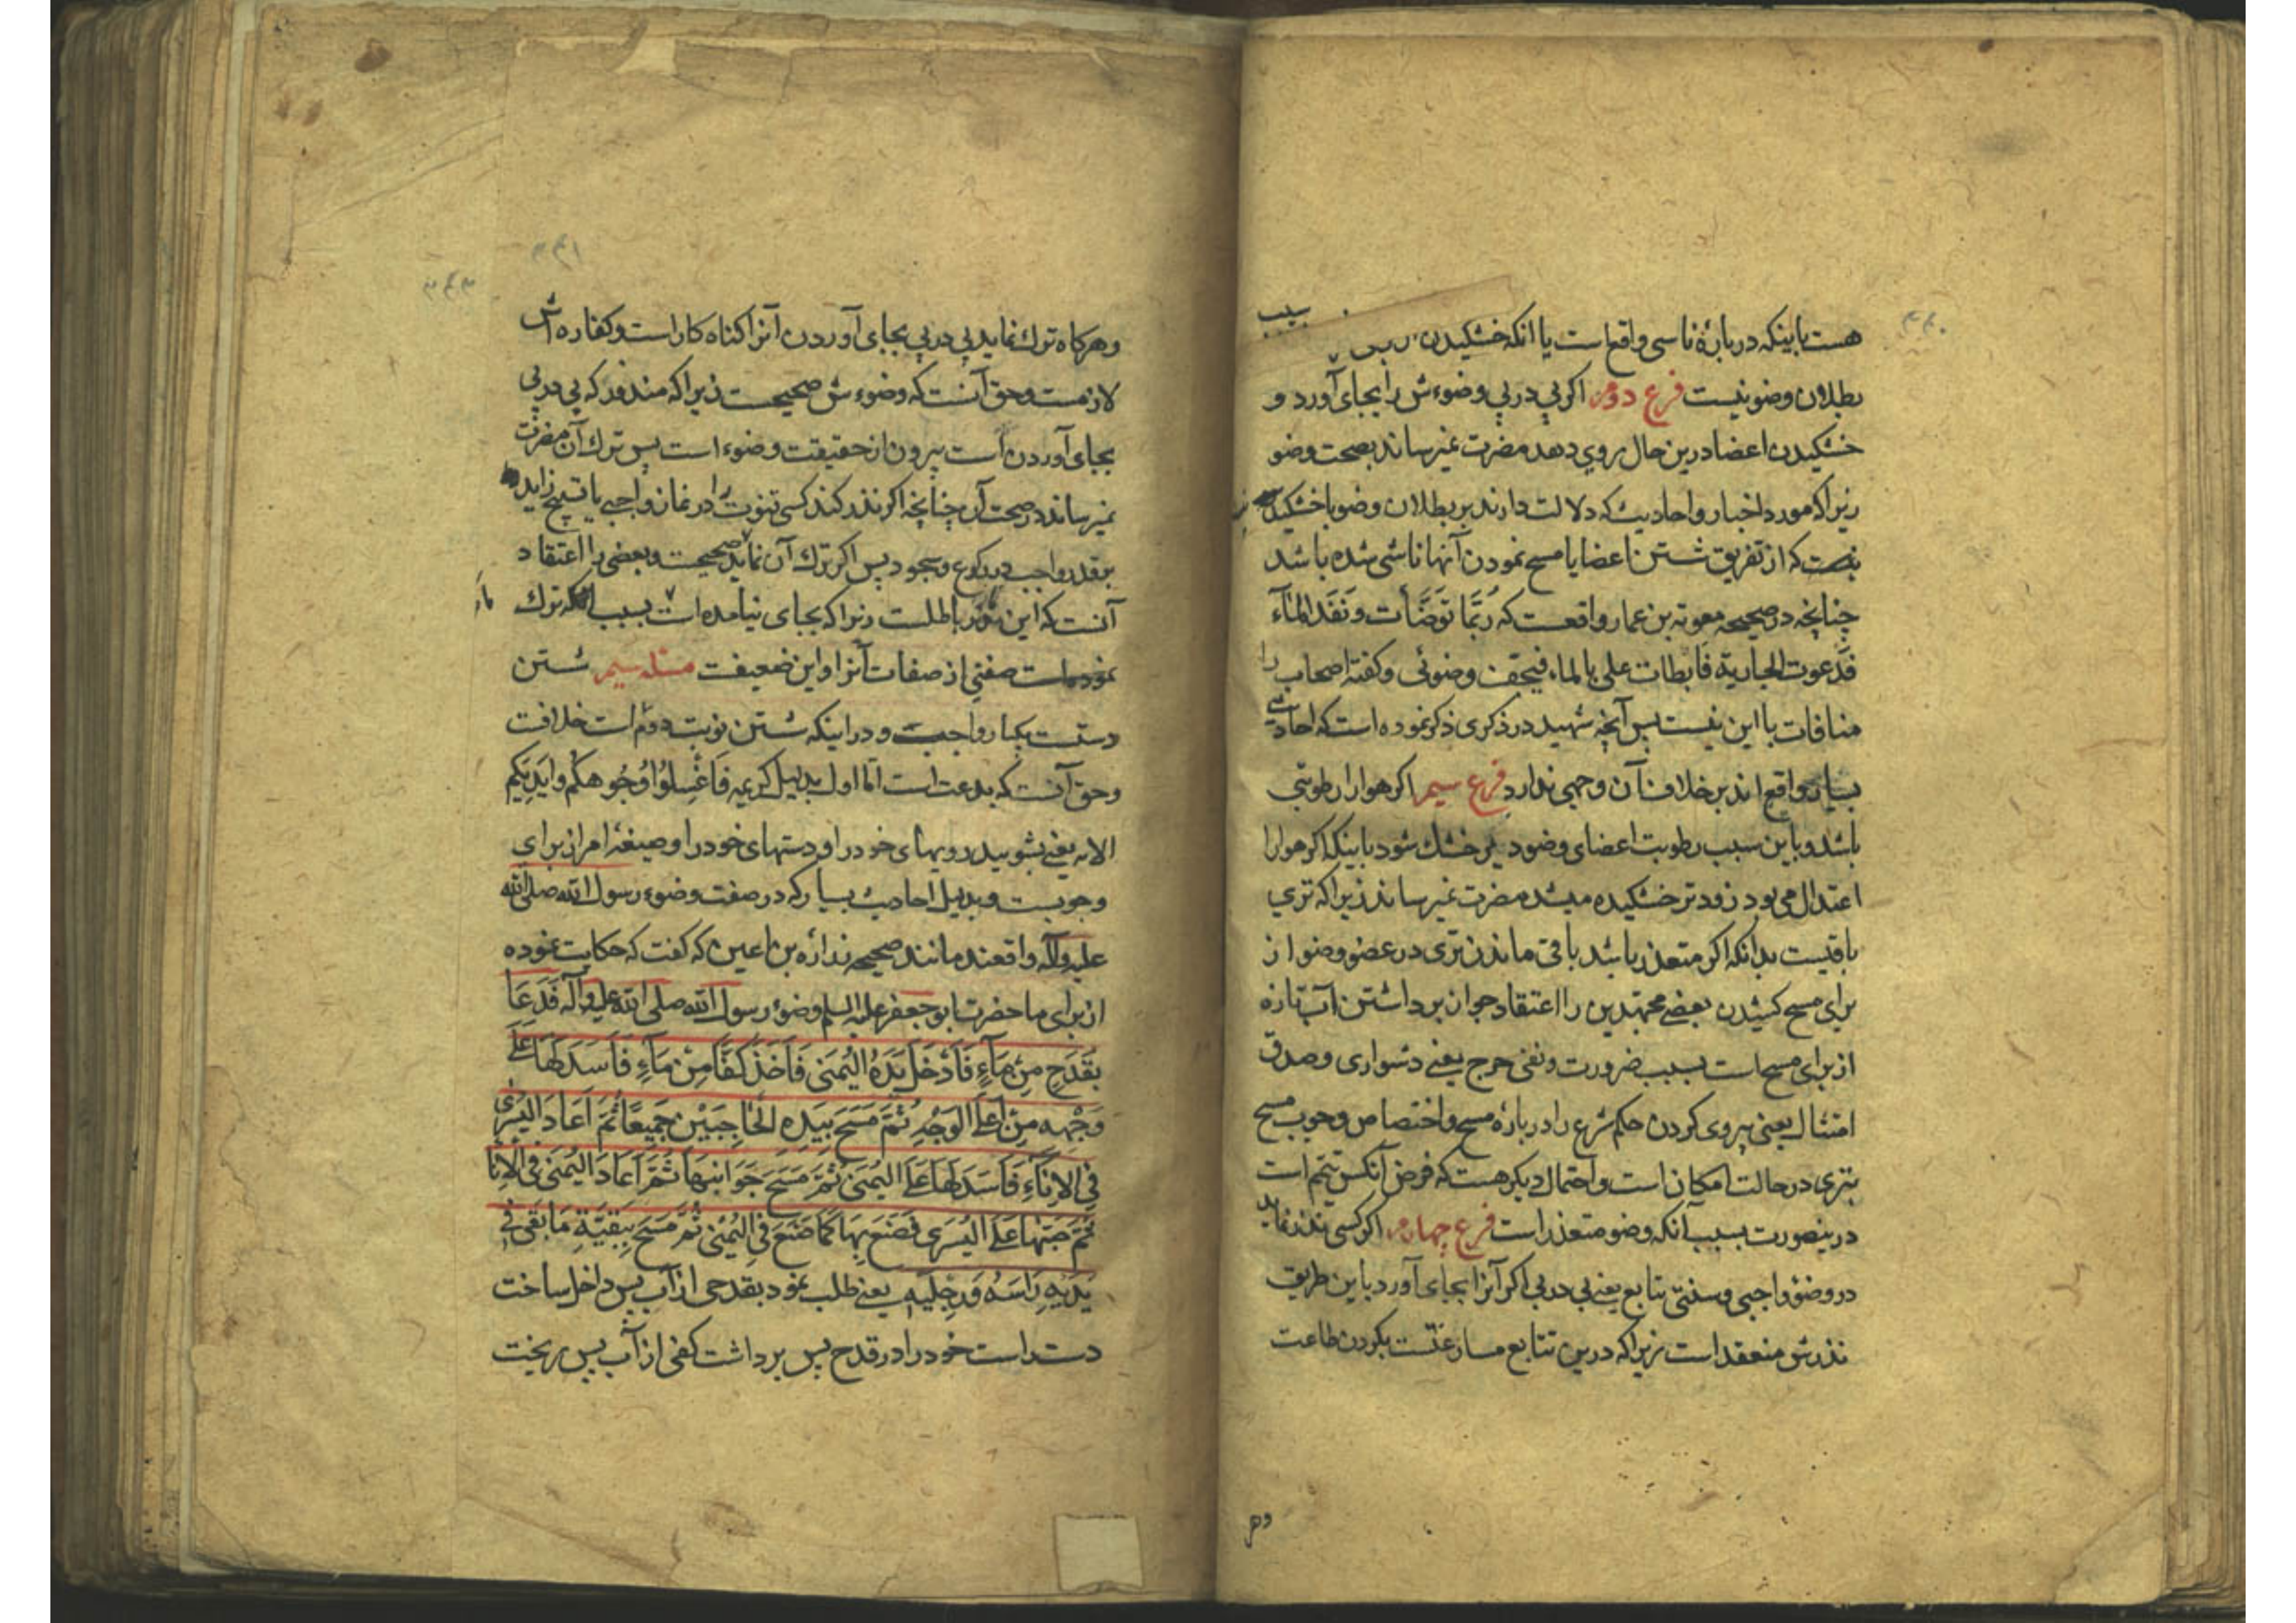 ۴۴۰
هست باینکه دربارهٔ ناسی واقع است یا انکه خشکیدن سبب
بطلان وضو نیست فرع دوم اکر پی در پی وضوءش را بجای آورد و
خشکیدن اعضا درین حال روی دهد مضرت نمیرساند بصحت وضو
زیرا که مورد اخبار و احادیث که دلالت دارند بر بطلان وضو با خشکیدن
که از تفریق شستن اعضا یا مسح نمودن آنها ناشی شده باشد
چنانچه در صحیحه معویة بن عمار واقعست که رُبَّمَا تَوَضَّأت وَنَفَدَ المَآء
فَدَعوت الجاریة فابطات علی بالماء فیجف وضوئی و کفته اصحاب را
منافات با این نیست پس آنچه شهید در ذکری ذکر نموده است که احادیث
بسیار واقع اند بر خلاف آن وجهی ندارد فرع سیم اکر هوا را رطوبتی
باشد و باین سبب رطوبت اعضای وضو دیر خشک شود با بینکه اکر هوا را
اعتدال می بود زودتر خشکیده میشد مضرت نمیرساند زیرا که تری
باقیست بدانکه اکر متعذر باشد باقی ماندن تری در عضو وضو از
برای مسح کشیدن بعضی مجتهدین را اعتقاد جواز برداشتن آب تازه
از برای مسحات بسبب ضرورت و نفی حرج یعنی دشواری و صدق
امتثال یعنی پیروی کردن حکم شرع را دربارهٔ مسح و اختصاص وجوب مسح
بتری در حالت امکان است و احتمال دیکر هست که فرض آنکس تیمم است
درینصورت بسبب آنکه وضو متعذر است فرع چهارم اکر کسی نذر نماید
در وضوء واجبی و سنتی تتابع یعنی پی در پی اکر آنرا بجای آورد باین طریق
نذرش منعقد است زیرا که درین تتابع مسارعتست بکردن طاعت
وهر
۴۴۱
وهرکاه ترك نماید پی در پی بجای آوردن آنرا کناه کار است و کفاره اش
لازمست و حق آنست که وضوءش صحیحست زیرا که منذور که پی در پی
بجای آوردن است بیرون از حقیقت وضوء است پس ترك آن مضرت
نمیرساند در صحت آن چنانچه اکر نذر کند کسی قنوت را در نماز واجبی یا تسبیح زاید
بر قدر واجب در رکوع و سجود پس اکر ترك آن نماید صحیحست و بعضی را اعتقاد
آنست که این باطلست زیرا که بجای نیامده است بسبب آنکه ترك
نموده است صفتی از صفات آنرا و این ضعیفست مسئله سیم شستن
دست یکبار واجبست و در اینکه شستن نوبت دوم است خلافست
و حق آنست که بدعت است امّا اول بدلیل کریمه فَاغْسِلُوا وُجُوهَکُم وَایدیَکُم
الایه یعنی بشویید رویهای خود را و دستهای خود را و صیغهٔ امر از برای
وجوبست و بدلیل احادیث بسیار که در صفت وضوء رسول الله صلی الله
علیه وآله واقعند مانند صحیحه زراره بن اعین که کفت که حکایت نموده
از برای ما حضرت ابو جعفر علیه السلم وضوء رسول الله صلی الله علیه وآله فَدَعَا
بقَدَحٍ مِن مَآءٍ فَأدْخَلَ یَدَهُ الیُمنَی فَأخَذَ کَفًّا مِنْ مَآءٍ فَاَسدَلَهَا عَلَی
وَجْهِهِ مِن اَعلَی الوَجْهِ ثُمَّ مَسَحَ بیَدِه الحَاجِبَیْن جَمیعًا ثُمَّ اَعَادَ الیُسرَی
فِی الاِنَآءِ فَاسَدَلَهَا عَلَی الیُمنَی ثُمَّ مَسَحَ جَوَانبَهَا ثُمَّ اَعَادَ الیُمنَی فِی الاِنَا
ثُمَّ صَبَّهَا عَلَی الیُسرَی فَصَنَعَ بِهَا کَمَا صَنَعَ فِی الیُمنَی ثُمَّ مَسَحَ بِبَقِیَّةِ مَا بَقِیَ فِی
یَدَیْهِ رَاسَهُ وَرِجلَیهِ یعنی طلب نمود بقدحی از آب پس داخل ساخت
دست راست خود را در قدح پس برداشت کفی از آب پس ریخت